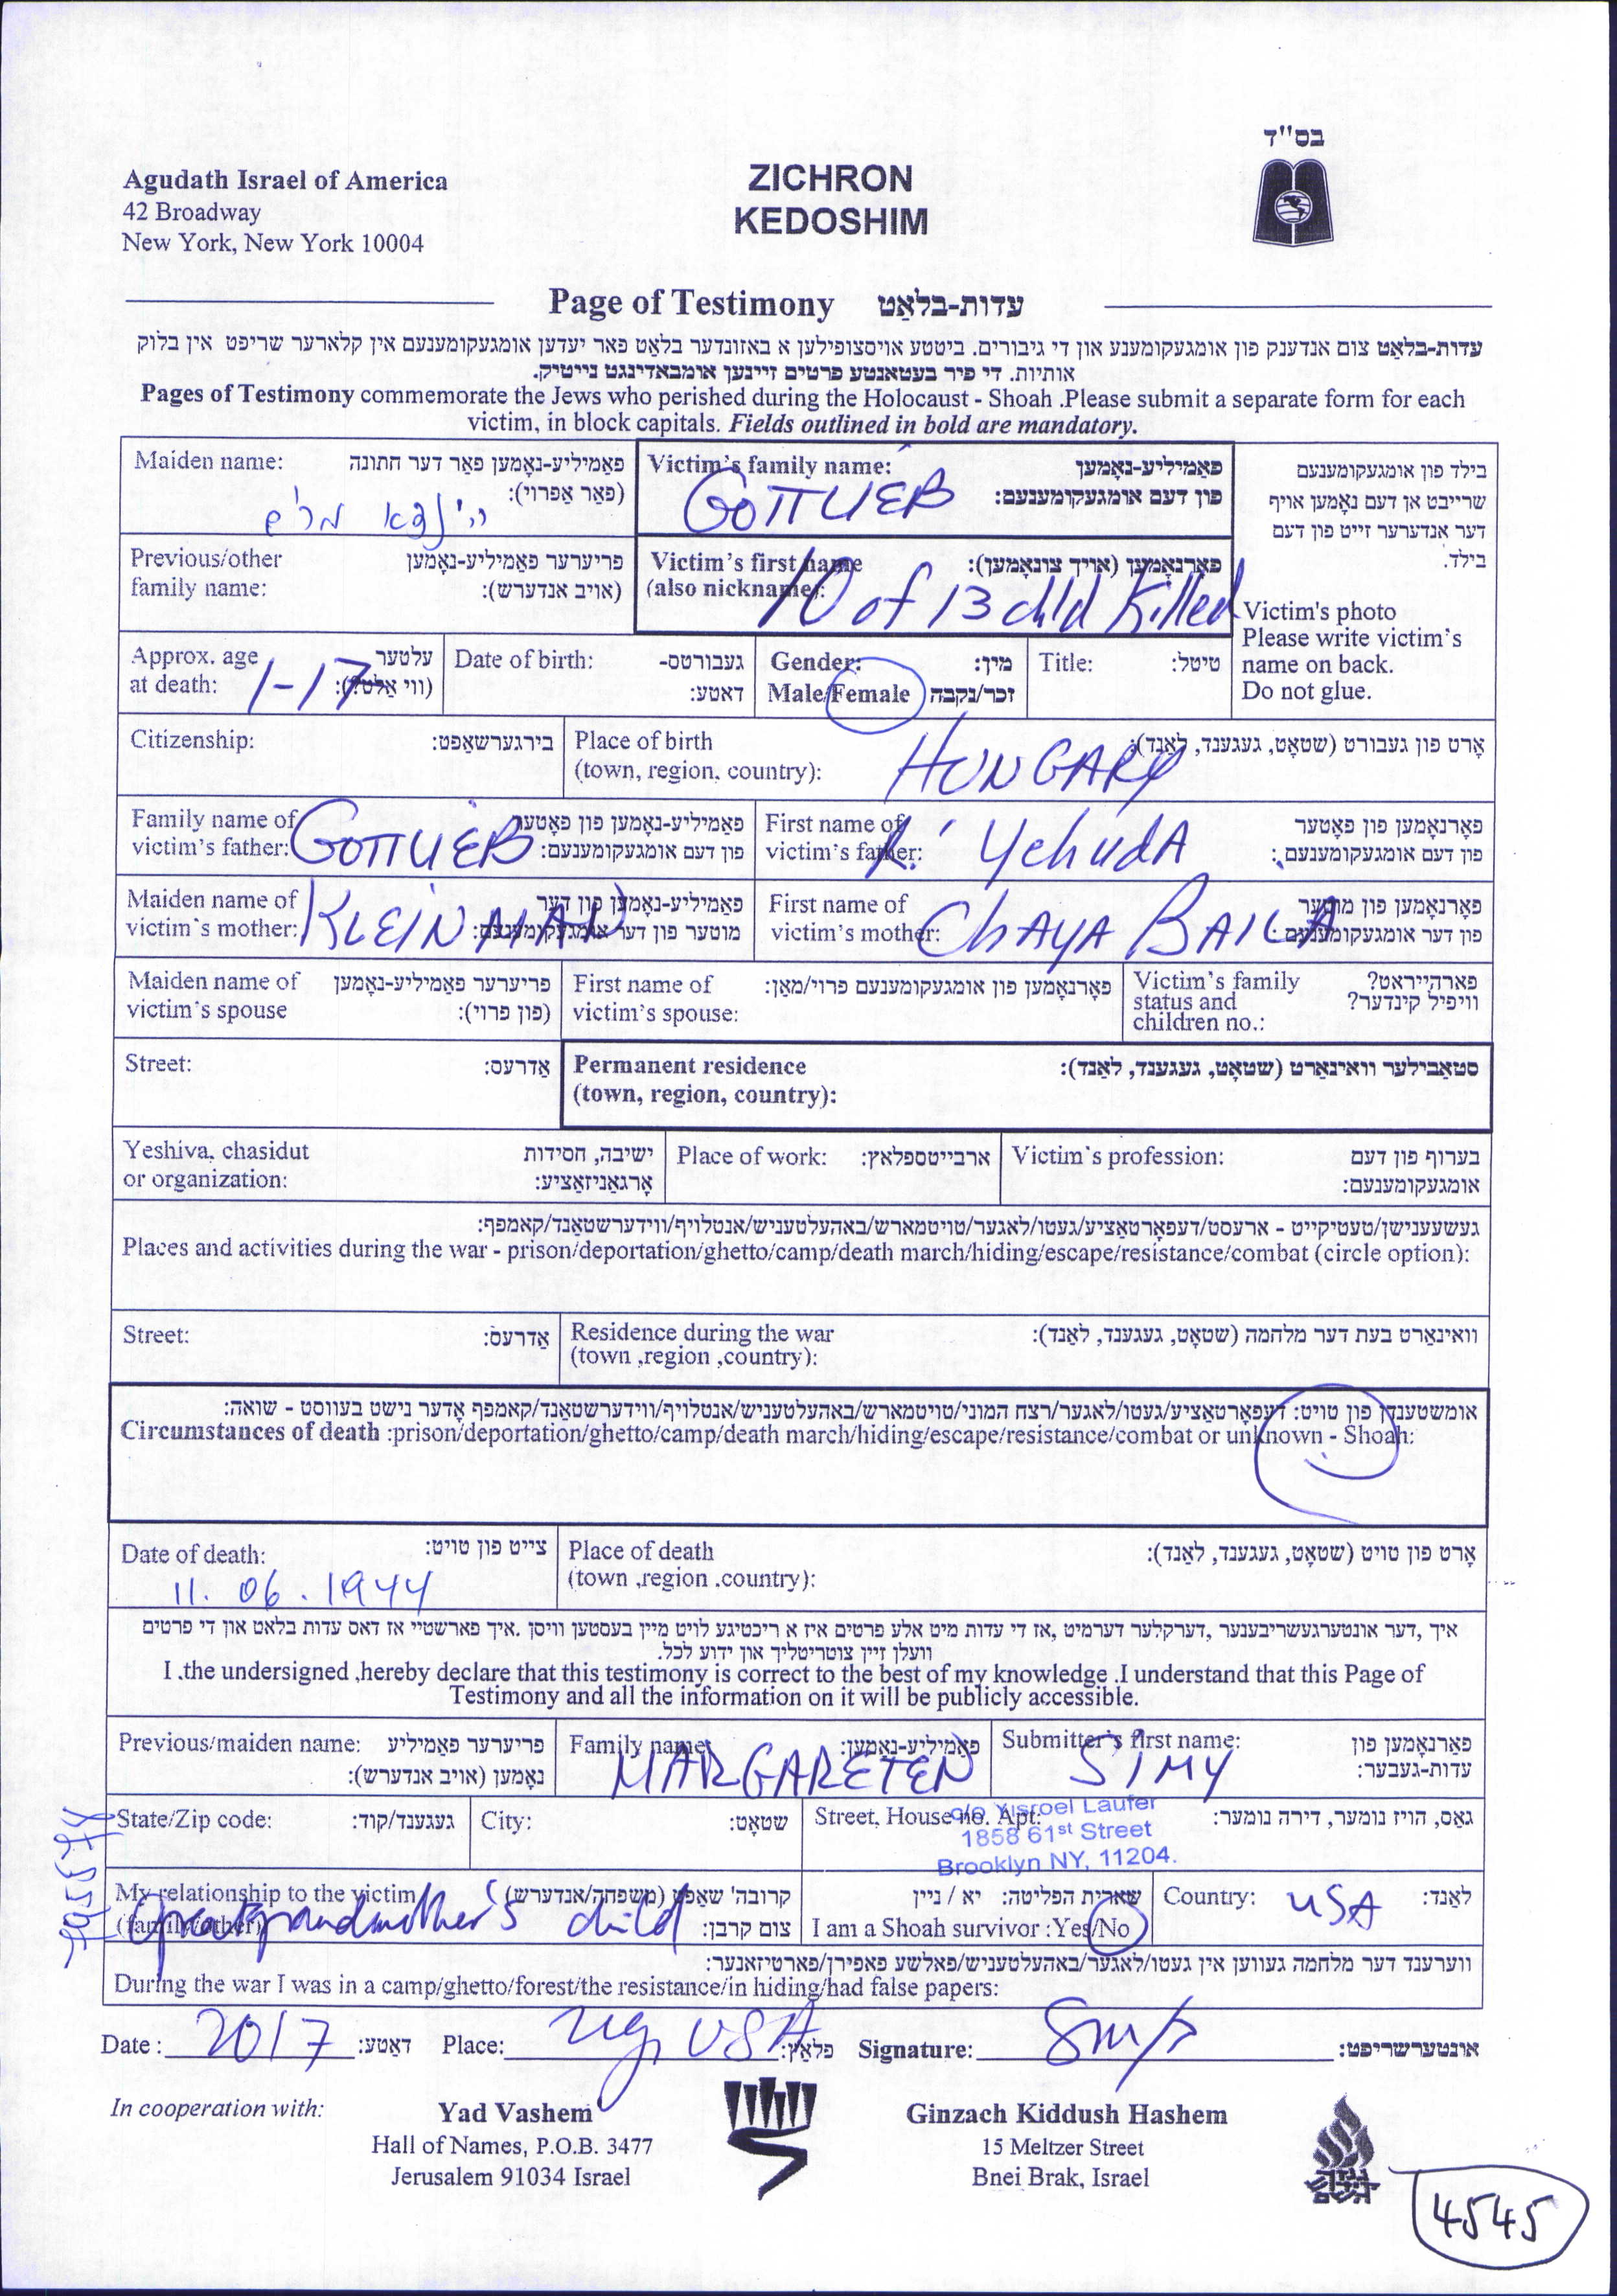 בס"ד
Agudath Israel of America
42 Broadway
New York, New York 10004
ZICHRON
KEDOSHIM
Page of Testimony עדות-בלאַט
עדות-בלאַט צום אנדענק פון אומגעקומענע און די גיבורים. ביטטע אויסצופילען א באזונדער בלאַט פאר יעדען אומגעקומענעם אין קלארער שריפט אין בלוק
אותיות. די פיר בעטאנטע פרטים זיינען אומבאדינגט נייטיק.
Pages of Testimony commemorate the Jews who perished during the Holocaust - Shoah .Please submit a separate form for each
victim, in block capitals. Fields outlined in bold are mandatory.
Maiden name: פאַמיליע-נאָמען פאַר דער חתונה
(פאַר אַפרוי):
Victim's family name: פאַמיליע-נאָמען
פון דעם אומגעקומענעם:
GOTTLIEB
בילד פון אומגעקומענעם
שרייבט אן דעם נאָמען אויף
דער אנדערער זייט פון דעם
בילד.
Victim's photo
Please write victim's
name on back.
Do not glue.
Previous/other פריערער פאַמיליע-נאָמען
family name: (אויב אנדערש):
Victim's first name פאָרנאָמען (אויך צונאָמען):
(also nickname):
10 of 13 child Killed
Approx. age עלטער
at death: (ווי אַלט?):
1-17
Date of birth: געבורטס-
דאטע:
Gender: מין:
Male/Female זכר/נקבה
Title: טיטל:
Citizenship: בירגערשאַפט:
Place of birth אָרט פון געבורט (שטאָט, געגענד, לאַנד):
(town, region, country):
HUNGARY
Family name of פאַמיליע-נאָמען פון פאָטער
victim's father: פון דעם אומגעקומענעם:
GOTTLIEB
First name of פאָרנאָמען פון פאָטער
victim's father: פון דעם אומגעקומענעם:
R' YehudA
Maiden name of פאַמיליע-נאָמען פון דער
victim's mother: מוטער פון דער אומגעקומענעם:
KLEINMAN
First name of פאָרנאָמען פון מוטער
victim's mother: פון דער אומגעקומענעם:
ChAYA BAILA
Maiden name of פריערער פאַמיליע-נאָמען
victim's spouse (פון פרוי):
First name of פאָרנאָמען פון אומגעקומענעם פרוי/מאַן:
victim's spouse:
Victim's family פארהייראט?
status and וויפיל קינדער?
children no.:
Street: אַדרעס:
Permanent residence סטאַבילער וואוינאָרט (שטאָט, געגענד, לאַנד):
(town, region, country):
Yeshiva, chasidut ישיבה, חסידות
or organization: אָרגאַניזאַציע:
Place of work: ארבייטספלאץ:
Victim's profession: בערוף פון דעם
אומגעקומענעם:
געשעענישן/טעטיקייט - ארעסט/דעפאָרטאַציע/געטו/לאגער/טויטמארש/באהעלטעניש/אנטלויף/ווידערשטאַנד/קאמפף:
Places and activities during the war - prison/deportation/ghetto/camp/death march/hiding/escape/resistance/combat (circle option):
Street: אַדרעס:
Residence during the war וואוינאָרט בעת דער מלחמה (שטאָט, געגענד, לאַנד):
(town ,region ,country):
אומשטענדן פון טויט: דעפאָרטאַציע/געטו/לאגער/רצח המוני/טויטמארש/באהעלטעניש/אנטלויף/ווידערשטאַנד/קאמפף אָדער נישט בעוואוסט - שואה:
Circumstances of death :prison/deportation/ghetto/camp/death march/hiding/escape/resistance/combat or unknown - Shoah:
Date of death: צייט פון טויט:
11. 06. 1944
Place of death אָרט פון טויט (שטאָט, געגענד, לאַנד):
(town ,region .country):
איך ,דער אונטערגעשריבענער ,דערקלער דערמיט ,אז די עדות מיט אלע פרטים איז א ריכטיגע לויט מיין בעסטען וויסן .איך פארשטיי אז דאס עדות בלאט און די פרטים
וועלן זיין צוטריטליך און ידוע לכל.
I .the undersigned ,hereby declare that this testimony is correct to the best of my knowledge .I understand that this Page of
Testimony and all the information on it will be publicly accessible.
Previous/maiden name: פריערער פאַמיליע
נאָמען (אויב אנדערש):
Family name: פאַמיליע-נאָמען:
MARGARETEN
Submitter's first name: פאַרנאָמען פון
עדות-געבער:
SIMY
State/Zip code: געגענד/קוד:
City: שטאָט:
Street, House no. Apt: גאַס, הויז נומער, דירה נומער:
c/o Yisroel Laufer
1858 61st Street
Brooklyn NY, 11204.
My relationship to the victim קרובה' שאַפט (משפחה/אנדערש)
(family/other) צום קרבן:
Greatgrandmother's child
שארית הפליטה: יא / ניין
I am a Shoah survivor :Yes/No
Country: USA לאַנד:
ווערענד דער מלחמה געווען אין געטו/לאגער/באהעלטעניש/פאלשע פאפירן/פארטיזאנער:
During the war I was in a camp/ghetto/forest/the resistance/in hiding/had false papers:
Date : 2017 דאַטע: Place: USA פלאץ: Signature: אונטערשריפט:
In cooperation with:
Yad Vashem
Hall of Names, P.O.B. 3477
Jerusalem 91034 Israel
Ginzach Kiddush Hashem
15 Meltzer Street
Bnei Brak, Israel
4545